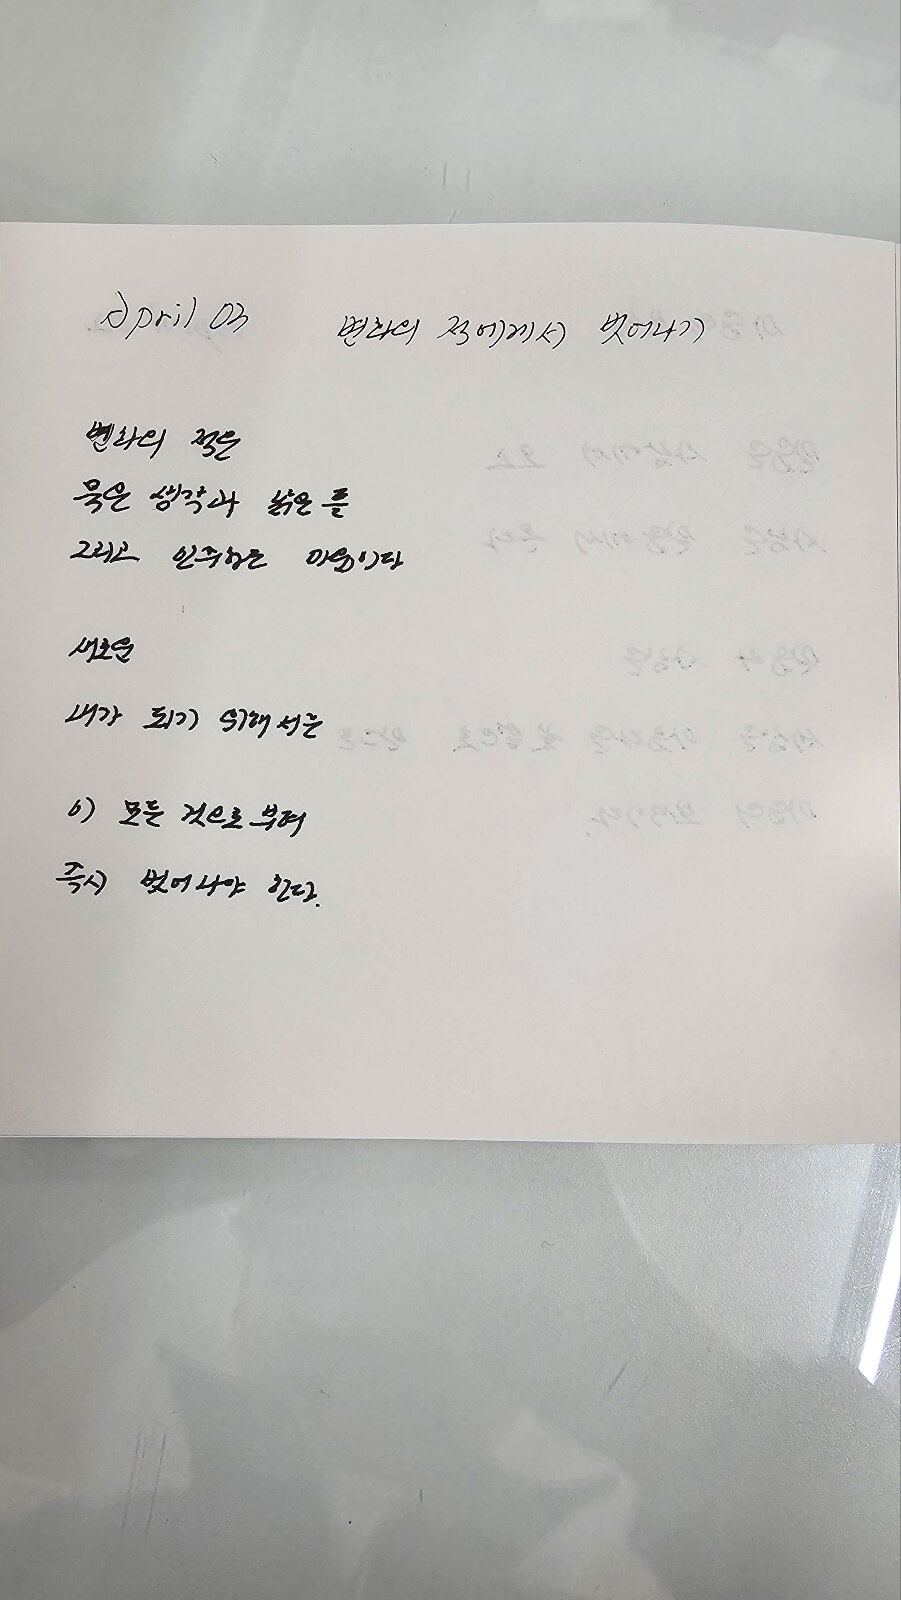 April 03 변화의 적에게서 벗어나기
변화의 적은
묵은 생각과 낡은 틀
그리고 안주하는 마음이다
새로운
내가 되기 위해서는
이 모든 것으로부터
즉시 벗어나야 한다.